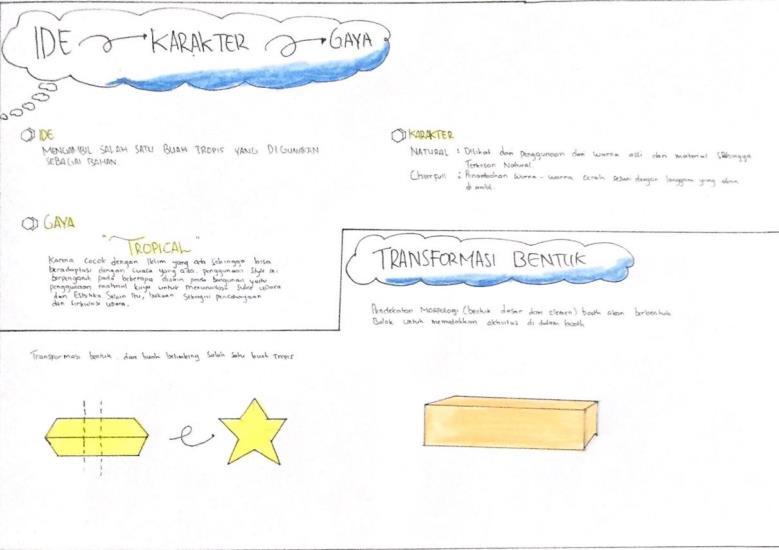 IDE KARAKTER GAYA
IDE
MENGAMBIL SALAH SATU BUAH TROPIS YANG DIGUNAKAN
SEBAGAI BAHAN.
KARAKTER
NATURAL : Dilihat dari penggunaan dan warna asli dari material sehingga
Terkesan Natural.
Cheerfull : Penambahan warna - warna cerah sesuai dengan langgam yang akan
di ambil.
GAYA
"TROPICAL"
Karena Cocok dengan Iklim yang ada Sehingga bisa
beradaptasi dengan cuaca yang ada. penggunaan Style ini
berpengaruh pada beberapa disain pada bangunan yaitu
penggunaan material kayu untuk suhu udara
dan Estetika Selain itu, bukaan Sebagai pencahayaan
dan sirkulasi udara.
TRANSFORMASI BENTUK
Pendekatan Morfologi (bentuk dasar dan elemen) booth akan berbentuk
Balok untuk memudahkan aktivitas di dalam booth
Transformasi bentuk dari buah belimbing Salah satu buah Tropis